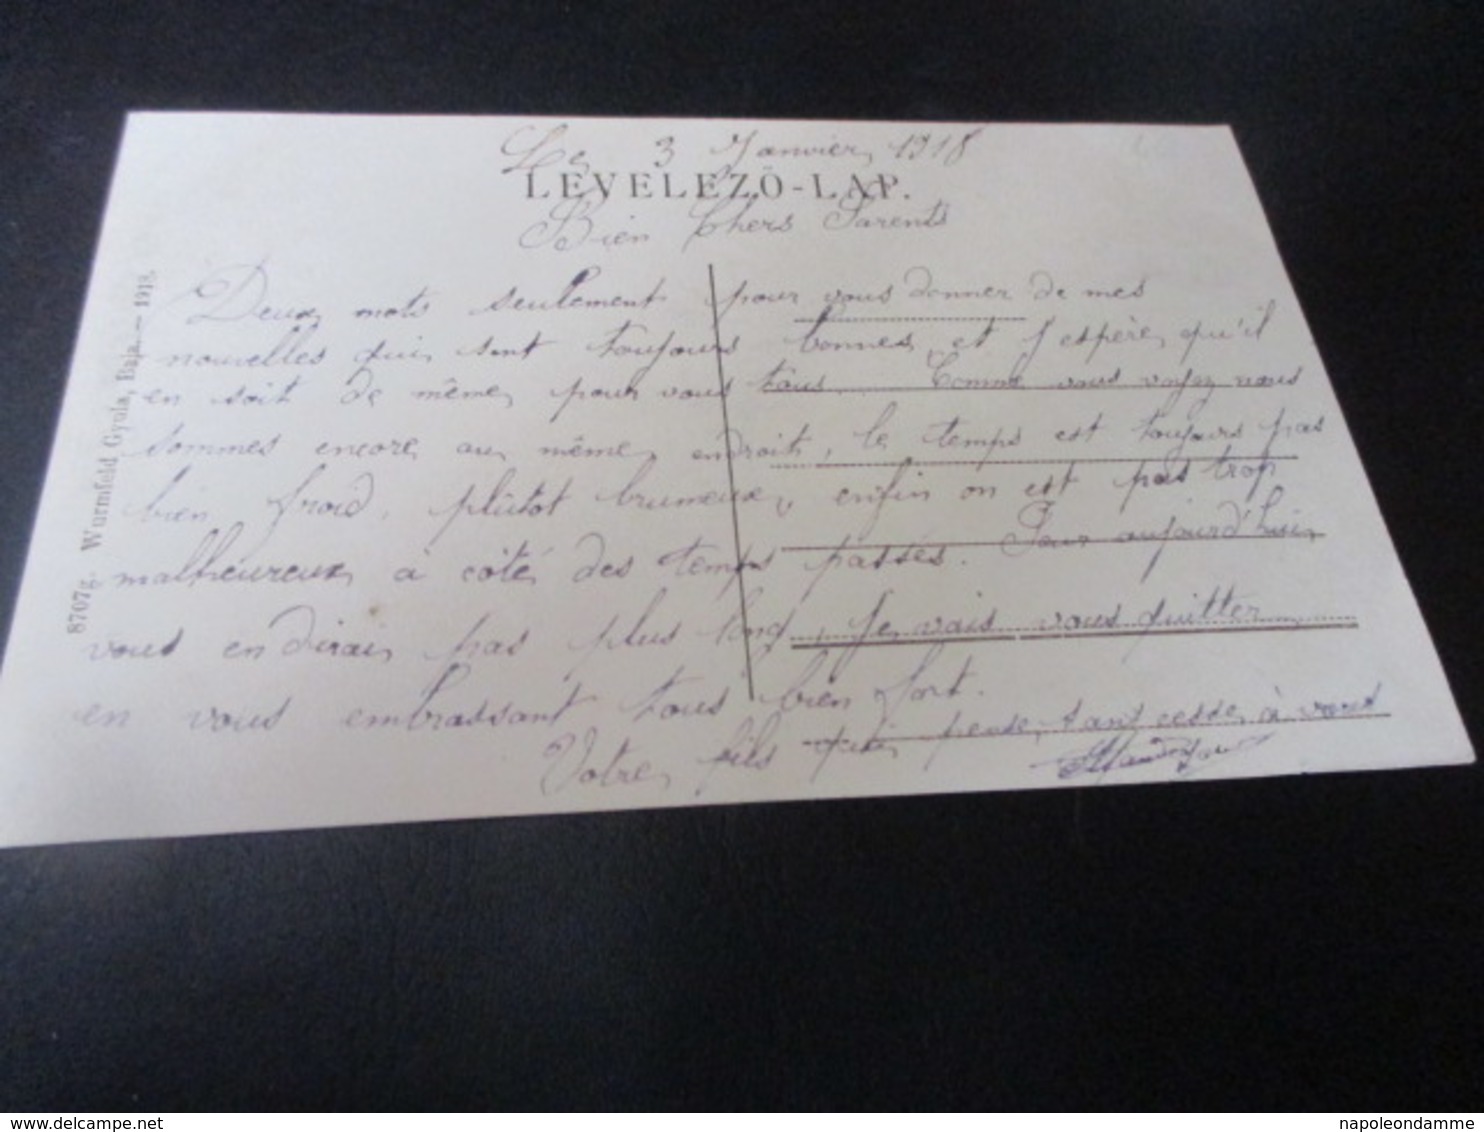 Le 3 Janvier 1918
LEVELEZŐ-LAP.
Bien Chers Parents
Deux mots seulement pour vous donner de mes
nouvelles qui sont toujours bonnes, et j'espère qu'il
en soit de même pour vous tous. Comme vous voyez nous
sommes encore au même endroit, le temps est toujours pas
bien froid, plûtot brumeux, enfin on est pas trop
malheureux à côté des temps passés. Pour aujourd'hui
vous en dirai pas plus long, Je vais vous quitter
en vous embrassant tous bien fort.
Votre fils qui pense sans cesse à vous
8707g. Wurmfeld Gyula, Baja.— 1913.
www.delcampe.net
napoleondamme